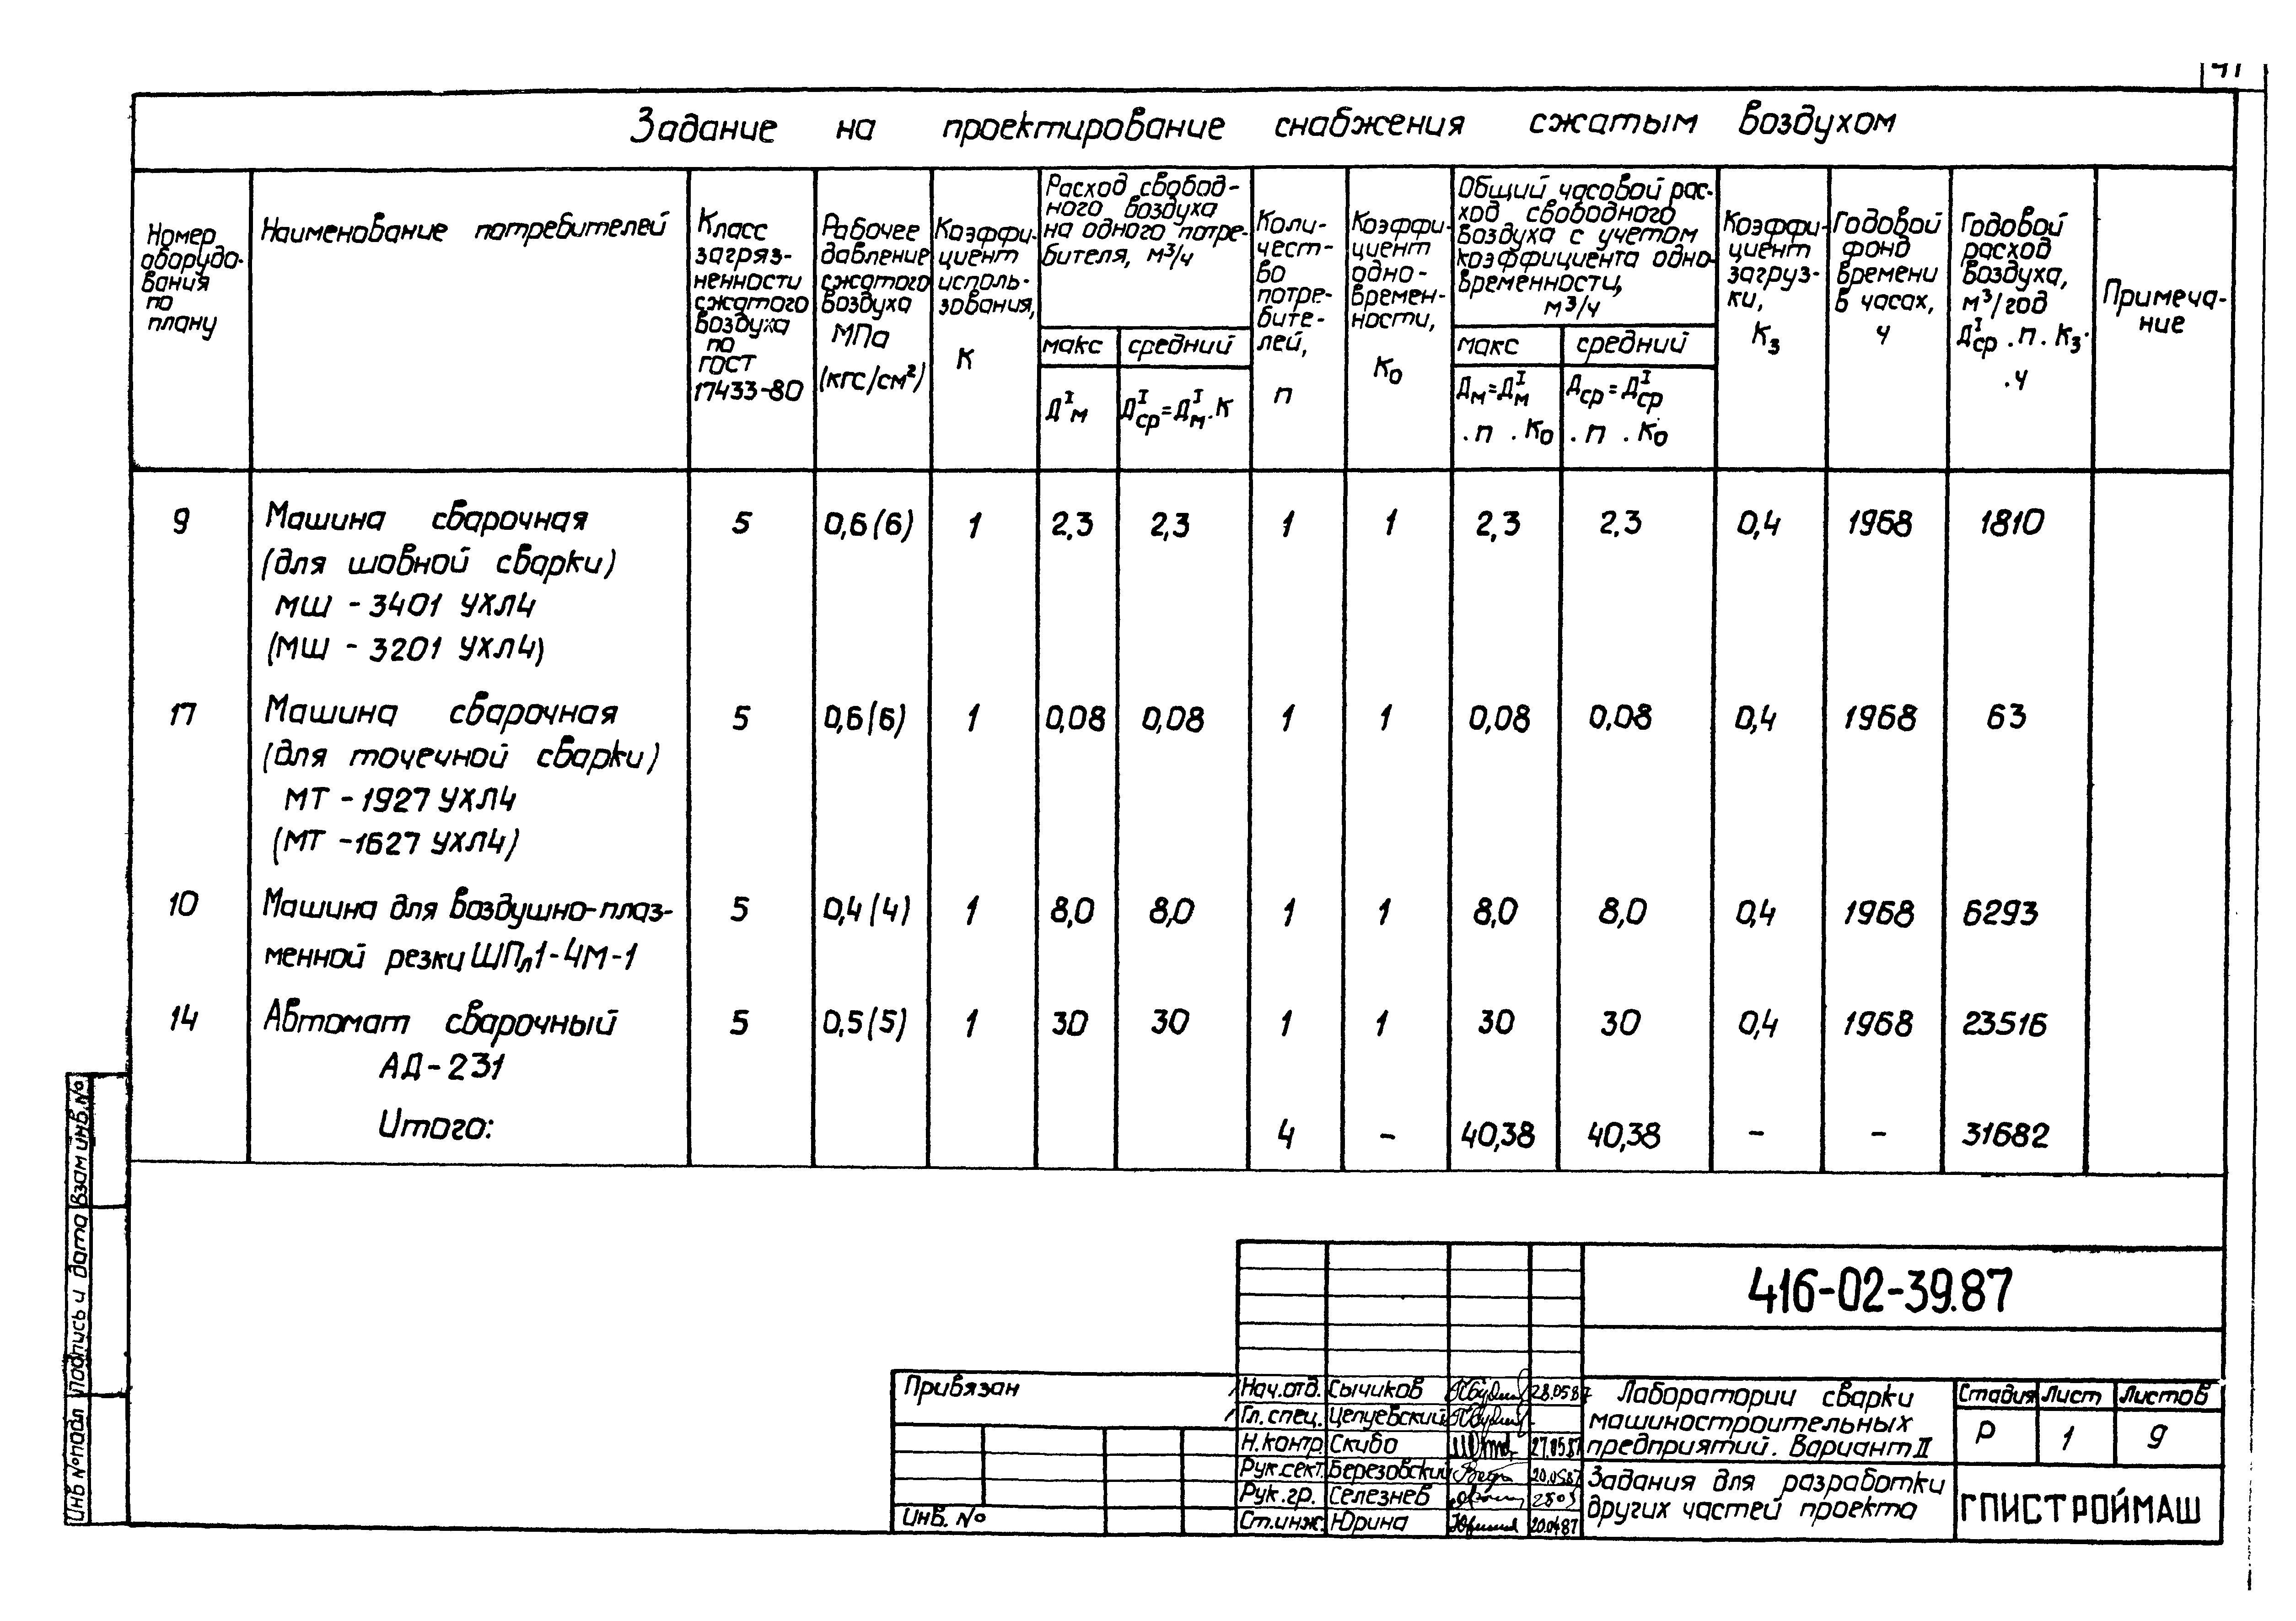 41
Задание на проектирование снабжения сжатым воздухом
Номер оборудо-вания по плану
Наименование потребителей
Класс загряз-ненности сжатого воздуха по ГОСТ 17433-80
Рабочее давление сжатого воздуха МПа (кгс/см²)
Коэффи-циент исполь-зования, К
Расход свобод-ного воздуха на одного потре-бителя, м³/ч
макс
средний
Дᴵм
Дᴵср=Дᴵм.К
Коли-чест-во потре-бите-лей, п
Коэффи-циент одно-времен-ности, Ко
Общий часовой рас-ход свободного воздуха с учетом коэффициента одно-временности, м³/ч
макс
средний
Дм=Дᴵм .п .Ко
Дср=Дᴵср .п .Ко
Коэффи-циент загруз-ки, Кз
Годовой фонд времени в часах, ч
Годовой расход воздуха, м³/год Дᴵср .п.Кз. .ч
Примеча-ние
9 Машина сварочная 5 0,6(6) 1 2,3 2,3 1 1 2,3 2,3 0,4 1968 1810
(для шовной сварки)
МШ - 3401 УХЛ4
(МШ - 3201 УХЛ4)
17 Машина сварочная 5 0,6(6) 1 0,08 0,08 1 1 0,08 0,08 0,4 1968 63
(для точечной сварки)
МТ - 1927 УХЛ4
(МТ -1627 УХЛ4)
10 Машина для воздушно-плаз- 5 0,4(4) 1 8,0 8,0 1 1 8,0 8,0 0,4 1968 6293
менной резки ШПл1-4М-1
14 Автомат сварочный 5 0,5(5) 1 30 30 1 1 30 30 0,4 1968 23516
АД-231
Итого: 4 - 40,38 40,38 - - 31682
Взам инв.№
Подпись и дата
Инв №подл
416-02-39.87
Привязан
Инв. №
Нач.отд. Сычиков 28.05.87
Гл.спец. Цепуевский
Н.контр. Скибо 27.05.87
Рук.сект. Березовский 20.05.87
Рук.гр. Селезнев
Ст.инж. Юрина 20.04.87
Лаборатории сварки
машиностроительных
предприятий. Вариант II
Стадия Лист Листов
Р 1 9
Задания для разработки
других частей проекта
ГПИСТРОЙМАШ